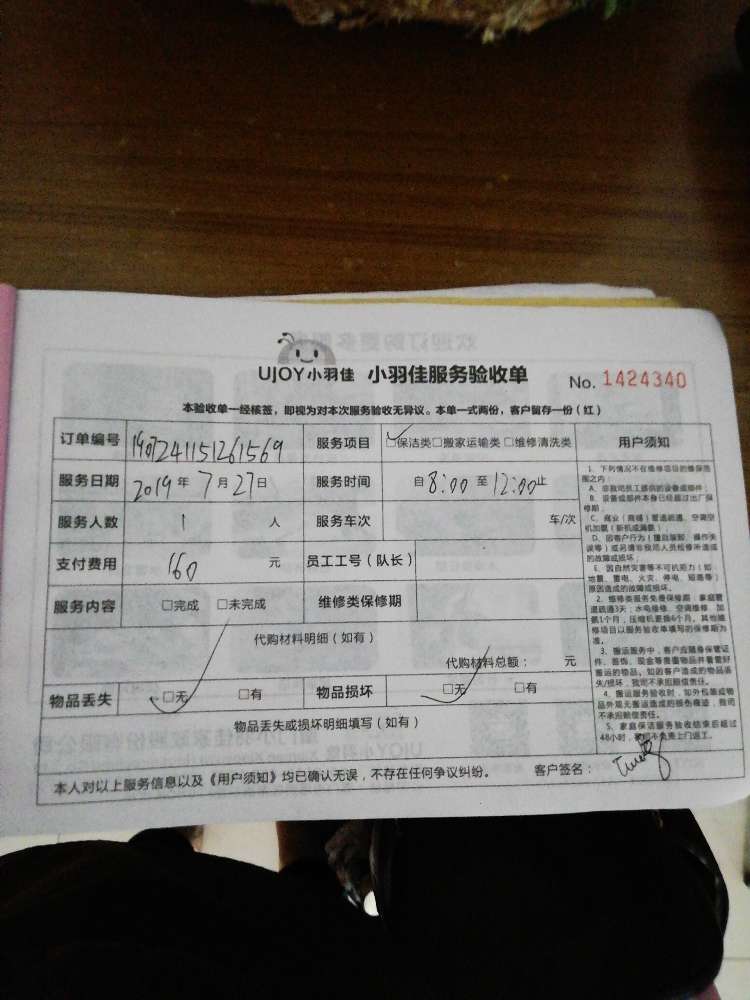 UJOY小羽佳 小羽佳服务验收单 No. 1424340
本验收单一经核签，即视为对本次服务验收无异议。本单一式两份，客户留存一份（红）
订单编号 1907241151261569 服务项目 □保洁类□搬家运输类□维修清洗类 用户须知
服务日期 2019年7月27日 服务时间 自8:00至12:00止
服务人数 1 人 服务车次 车/次
支付费用 160 元 员工工号（队长）
服务内容 □完成 □未完成 维修类保修期
代购材料明细（如有）
代购材料总额： 元
物品丢失 □无 □有 物品损坏 □无 □有
物品丢失或损坏明细填写（如有）
本人对以上服务信息以及《用户须知》均已确认无误，不存在任何争议纠纷。 客户签名：
1、下列情况不在维修项目的维保范
围之内：
A、非我司员工提供的设备或部件；
B、设备或部件本身已经超过出厂保
修期；
C、商业（商铺）管道疏通、空调空
机加氨（新机或漏氨）；
D、因客户行为（擅自接装、操作失
误等）或另请非我司人员检修所造成
的故障或损坏；
E、因自然灾害等不可抗拒力（如：
地震、雷电、火灾、停电、短路等）
原因造成的故障或损坏。
2、维修类服务免费保修期：家庭管
道疏通3天；水电维修、空调维修、加
氨1个月，压缩机更换6个月。其他维
修项目以服务验收单填写的保修期为
准。
3、搬运服务中，客户应随身保管证
件、首饰、现金等贵重物品并看管好
搬运的物品。如因客户造成的物品丢
失/损坏，我司不承担赔偿责任。
4、搬运服务验收时，如外包装或物
品外观无搬运造成的服务痕迹，我司
不承担赔偿责任。
5、家庭保洁服务验收结束后超过
48小时，我司不免费上门返工。